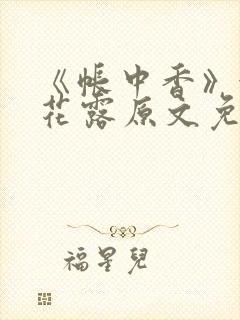 《帐中香》
花露原文免
福星儿